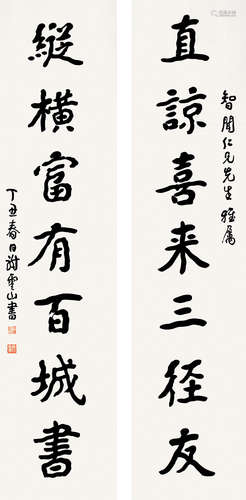 智闻仁兄先生雅属
直諒喜来三径友
縱橫富有百城書
丁丑春日謝雲山書